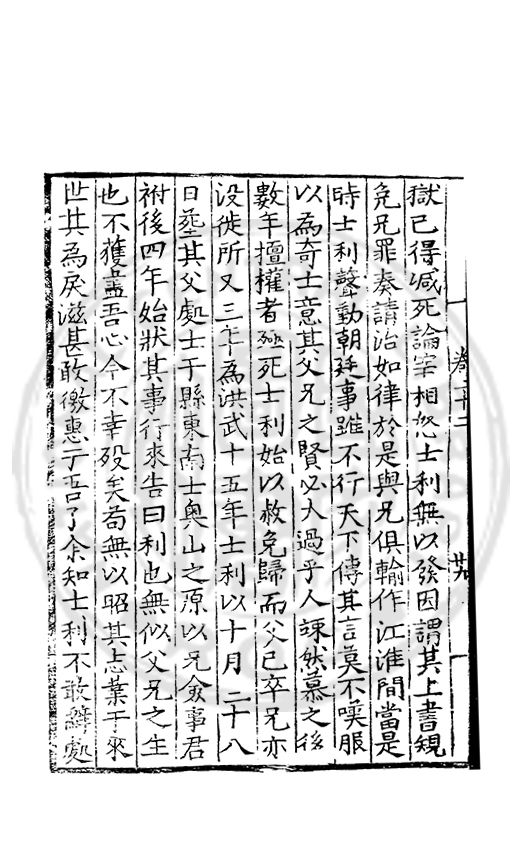 獄已得減死論宰相怒士利無以發因謂其上書規
免兄罪奏請治如律於是與兄俱輸作江淮間當是
時士利聲動朝廷事雖不行天下傳其言莫不嘆服
以為奇士意其父兄之賢必大過乎人竦然慕之後
數年擅權者殛死士利始以赦免歸而父已卒兄亦
沒徙所又三年為洪武十五年士利以十月二十八
日塟其父處士于縣東南士奧山之原以兄僉事君
祔後四年始狀其事行來告曰利也無似父兄之生
也不獲盡吾心今不幸歿矣苟無以昭其志葉于來
世其為戾滋甚敢徼惠于吾子余知士利不敢辭處
卷二十二
廿九